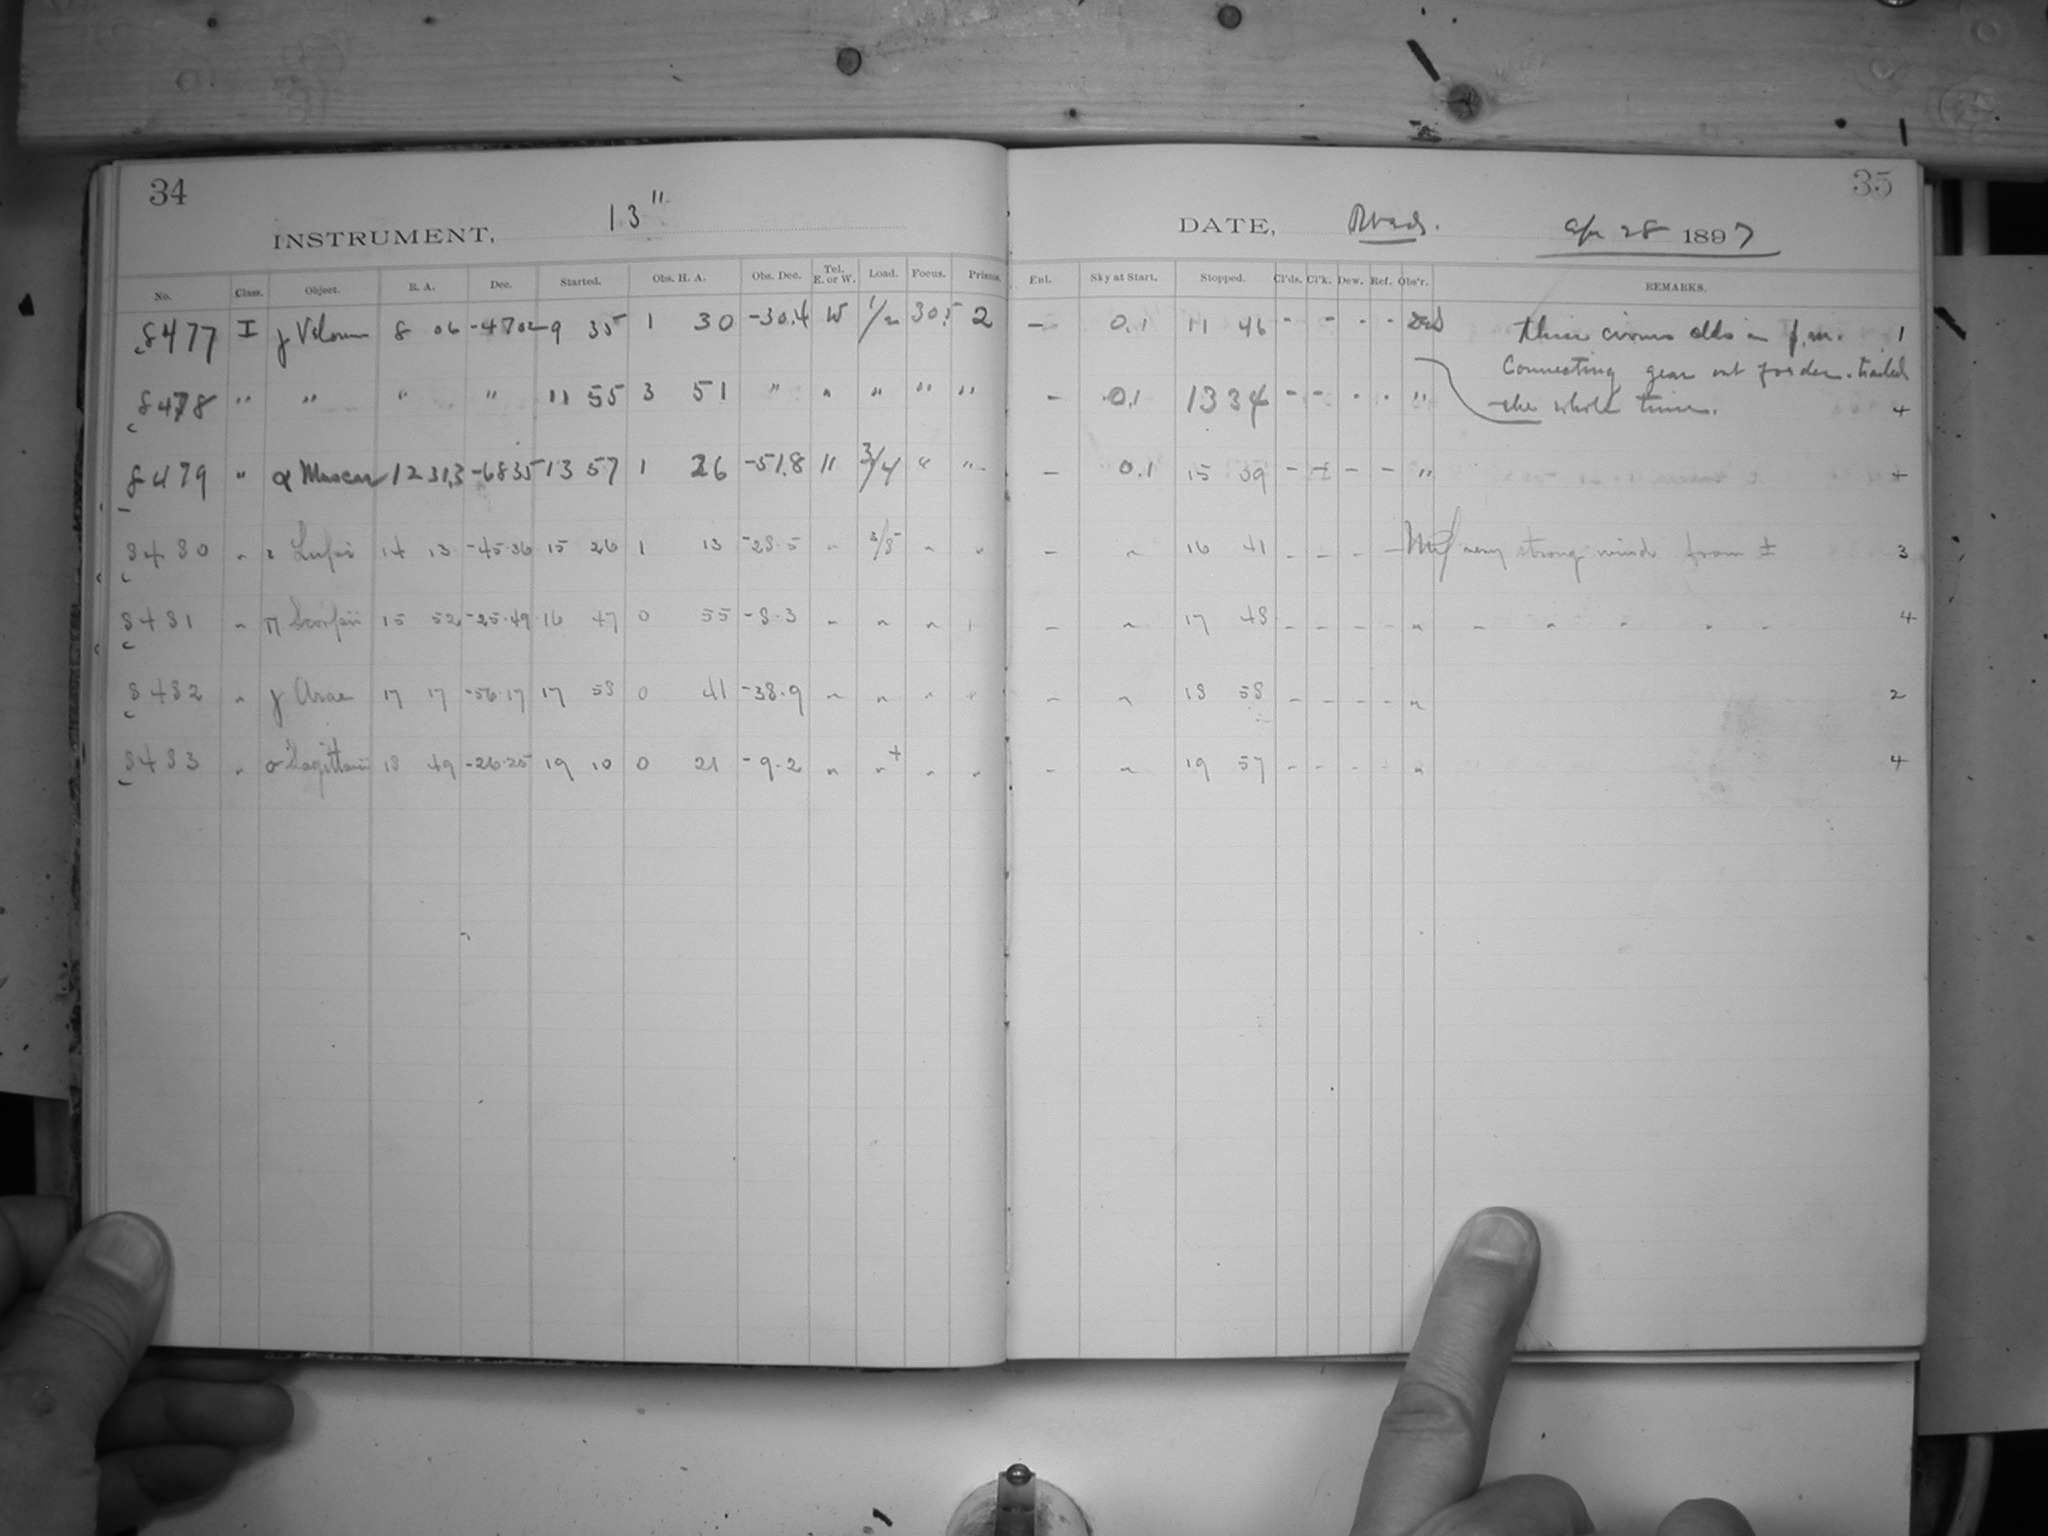 34
INSTRUMENT, 13"
No. Class. Object. R. A. Dec. Started. Obs. H. A. Obs. Dec. Tel. E. or W. Load. Focus. Prisms.
8477 I γ Velorum 8 06 -47 02 9 35 1 30 -30.4 W 1/2 30.5 2
8478 " " " " 11 55 3 51 " " " " "
8479 " α Muscae 12 31.3 -68 35 13 57 1 26 -51.8 " 3/4 " "
8480 " ι Lupi 14 13 -45.36 15 26 1 13 -28.5 " 3/5 " "
8481 " π Scorpii 15 52 -25.49 16 47 0 55 -8.3 " " " "
8482 " γ Arae 17 17 -56.17 17 58 0 41 -38.9 " " " "
8483 " σ Sagittarii 18 49 -26.25 19 10 0 21 -9.2 " " + " "
35
DATE, Apr 28 1897
Enl. Sky at Start. Stopped. Cl'ds. Cl'k. Dew. Ref. Obs'r. REMARKS.
- 0.1 11 46 - - - - cirrus clds in p.m. 1
Connecting gear out of order. trailed
- 0.1 13 34 - - - - " the whole time. 4
- 0.1 15 39 - ± - - " +
- " 16 41 - - - - very strong wind from ± 3
- " 17 48 - - - - " - " " " - 4
- " 18 58 - - - - " 2
- " 19 57 - - - - " 4